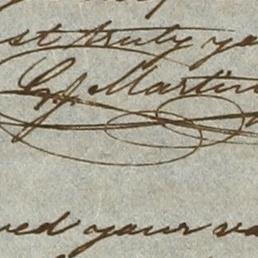 st truly yo
G J Martin
ved your va